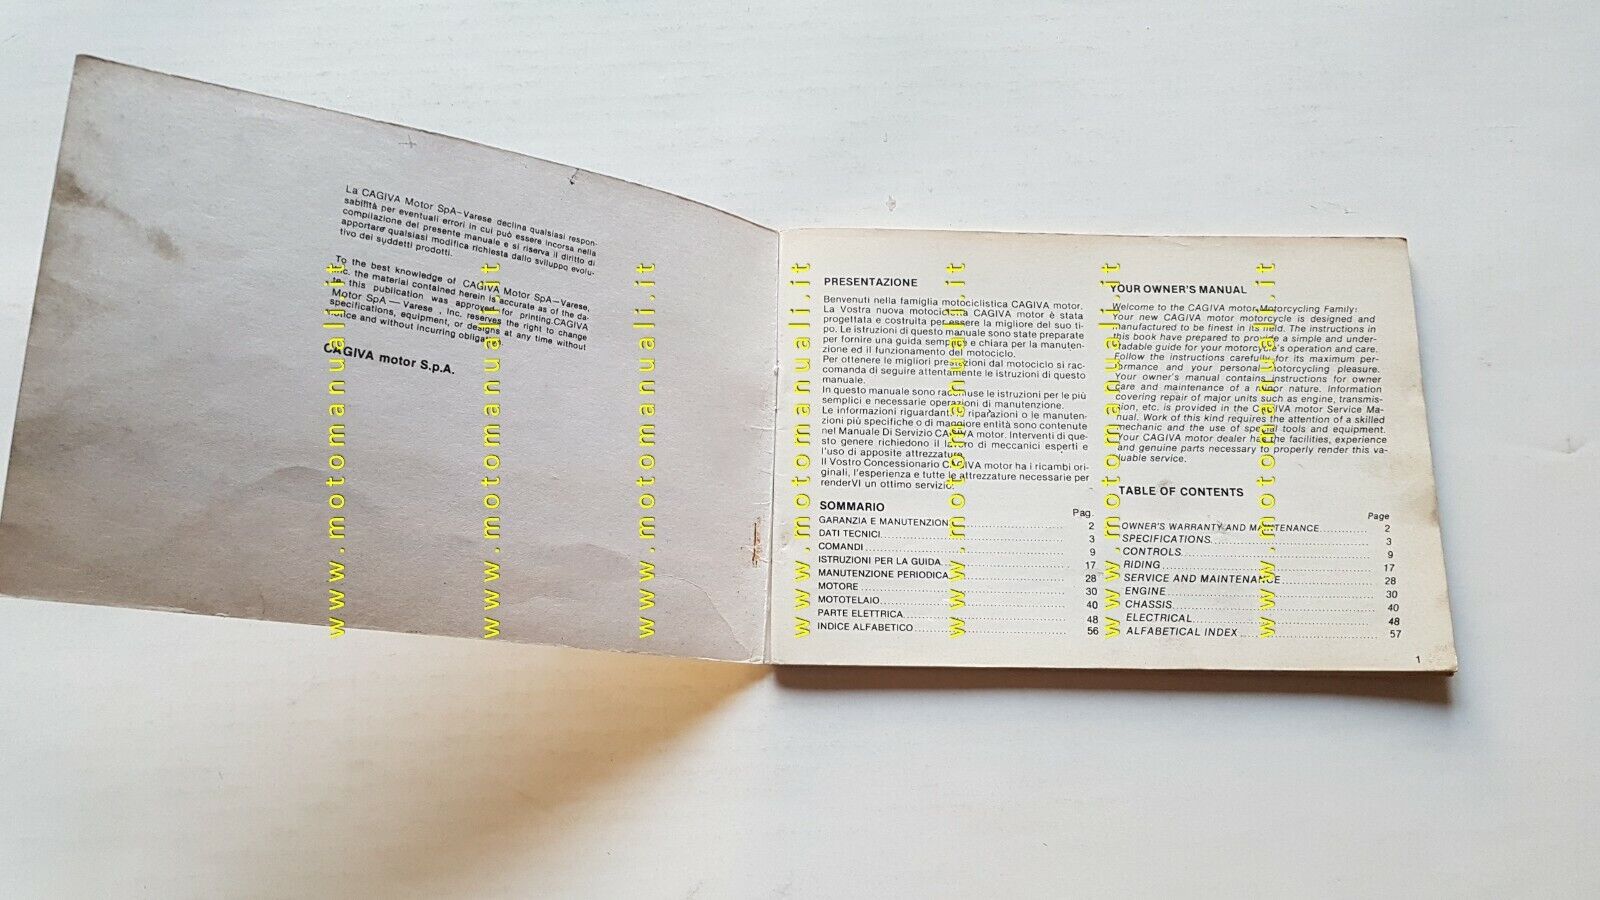 La CAGIVA Motor SpA–Varese declina qualsiasi respon-
sabilità per eventuali errori in cui può essere incorsa nella
compilazione del presente manuale e si riserva il diritto di
apportare qualsiasi modifica richiesta dallo sviluppo evolu-
tivo dei suddetti prodotti.
To the best knowledge of CAGIVA Motor SpA–Varese,
Inc. the material contained herein is accurate as of the da-
te this publication was approved for printing.CAGIVA
Motor SpA — Varese , Inc. reserves the right to change
specifications, equipment, or designs at any time without
notice and without incurring obligation.
CAGIVA motor S.p.A.
PRESENTAZIONE
Benvenuti nella famiglia motociclistica CAGIVA motor.
La Vostra nuova motocicletta CAGIVA motor è stata
progettata e costruita per essere la migliore del suo ti-
po. Le istruzioni di questo manuale sono state preparate
per fornire una guida semplice e chiara per la manuten-
zione ed il funzionamento del motociclo.
Per ottenere le migliori prestazioni dal motociclo si rac-
comanda di seguire attentamente le istruzioni di questo
manuale.
In questo manuale sono racchiuse le istruzioni per le più
semplici e necessarie operazioni di manutenzione.
Le informazioni riguardanti riparazioni o le manuten-
zioni più specifiche o di maggiore entità sono contenute
nel Manuale Di Servizio CAGIVA motor. Interventi di que-
sto genere richiedono il lavoro di meccanici esperti e
l'uso di apposite attrezzature.
Il Vostro Concessionario CAGIVA motor ha i ricambi ori-
ginali, l'esperienza e tutte le attrezzature necessarie per
renderVI un ottimo servizio.
SOMMARIO
Pag.
GARANZIA E MANUTENZIONE 2
DATI TECNICI 3
COMANDI 9
ISTRUZIONI PER LA GUIDA 17
MANUTENZIONE PERIODICA 28
MOTORE 30
MOTOTELAIO 40
PARTE ELETTRICA 48
INDICE ALFABETICO 56
YOUR OWNER'S MANUAL
Welcome to the CAGIVA motor Motorcycling Family!
Your new CAGIVA motor motorcycle is designed and
manufactured to be finest in its field. The instructions in
this book have prepared to provide a simple and under-
stadable guide for your motorcycle's operation and care.
Follow the instructions carefully for its maximum per-
formance and your personal motorcycling pleasure.
Your owner's manual contains instructions for owner
care and maintenance of a minor nature. Information
covering repair of major units such as engine, transmis-
sion, etc. is provided in the CAGIVA motor Service Ma-
nual. Work of this kind requires the attention of a skilled
mechanic and the use of special tools and equipment.
Your CAGIVA motor dealer has the facilities, experience
and genuine parts necessary to properly render this va-
luable service.
TABLE OF CONTENTS
Page
OWNER'S WARRANTY AND MAINTENANCE 2
SPECIFICATIONS 3
CONTROLS 9
RIDING 17
SERVICE AND MAINTENANCE 28
ENGINE 30
CHASSIS 40
ELECTRICAL 48
ALFABETICAL INDEX 57
1
www.motomanuali.it
www.motomanuali.it
www.motomanuali.it
www.motomanuali.it
www.motomanuali.it
www.motomanuali.it
www.motomanuali.it